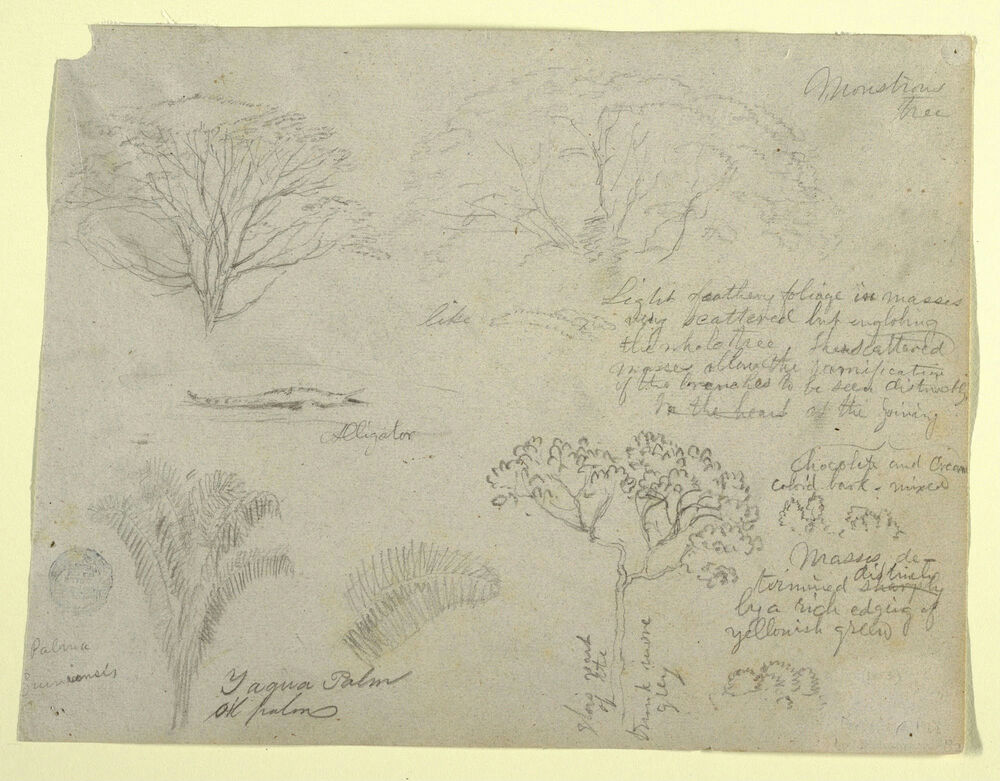 Monstrous
tree
Light feathery foliage in masses
very scattered but englobing
the whole tree. The scattered
masses allow the ramification
of the branches to be seen distinctly
In the heart of the
like
Alligator
Chocolate and Cream
color'd bark. mixed
Masses de-
termined sharply distinctly
by a rich edging of
yellowish green
Palma
Yagua Palm
or palm
this part
of the
trunk more
grey